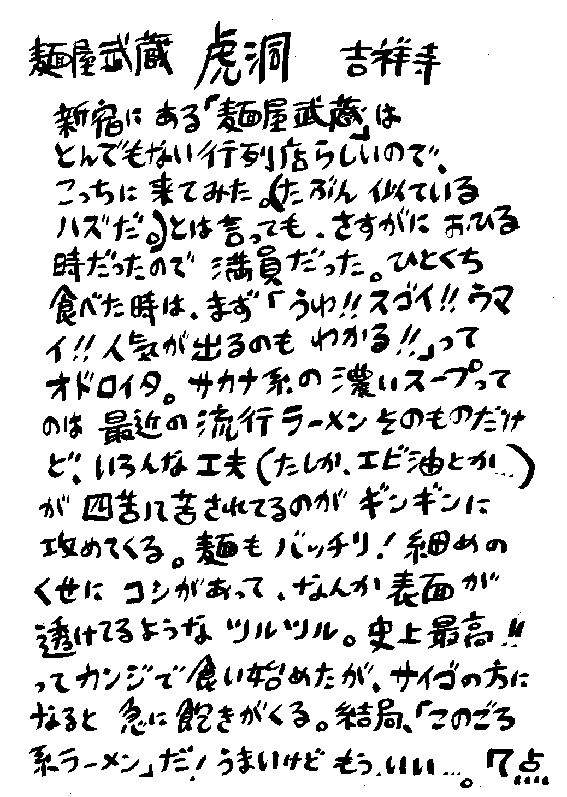 麺屋武蔵 虎洞 吉祥寺
新宿にある「麺屋武蔵」は
とんでもない行列店らしいので、
こっちに来てみた。(たぶん似ている
ハズだ。)とは言っても、さすがにおひる
時だったので満員だった。ひとくち
食べた時は、まず「うわ!!スゴイ!!ウマ
イ!!人気が出るのもわかる!!」って
オドロイタ。サカナ系の濃いスープって
のは最近の流行ラーメンそのものだけ
ど、いろんな工夫(たしか、エビ油とか…)
が四苦八苦されてるのがギンギンに
攻めてくる。麺もバッチリ!細めの
くせにコシがあって、なんか表面が
透けてるようなツルツル。史上最高!!
ってカンジで食い始めたが、サイゴの方に
なると急に飽きがくる。結局、「このごろ
系ラーメン」だ!うまいけどもう、いい…。7点